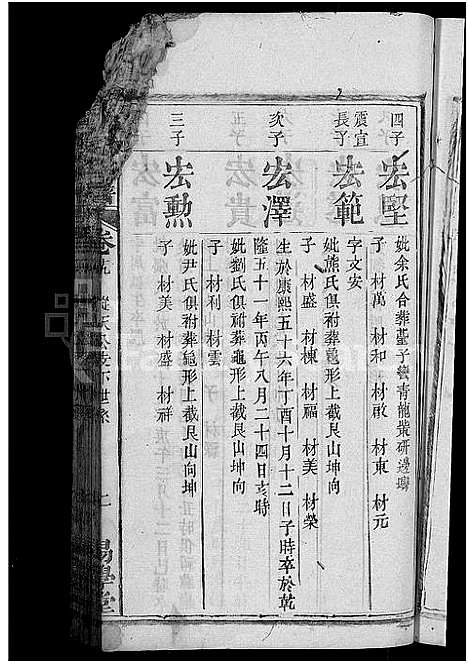 四子
宏堅
妣余氏合葬聖子巒青龍
子 材萬 材和 材啟 材東 材元
震宣長子
宏範
字文安
妣熊氏俱祔葬龜形上截艮山坤向
子 材盛 材棟 材福 材美 材榮
次子
宏澤
生於康熙五十六年丁酉十月十二日子時卒於乾
隆五十一年丙午八月二十四日亥時
妣劉氏俱祔葬龜形上截艮山坤向
子 材利 材雲
三子
宏勲
妣尹氏俱祔葬龜形上截艮山向坤
子 材美 材盛 材祥